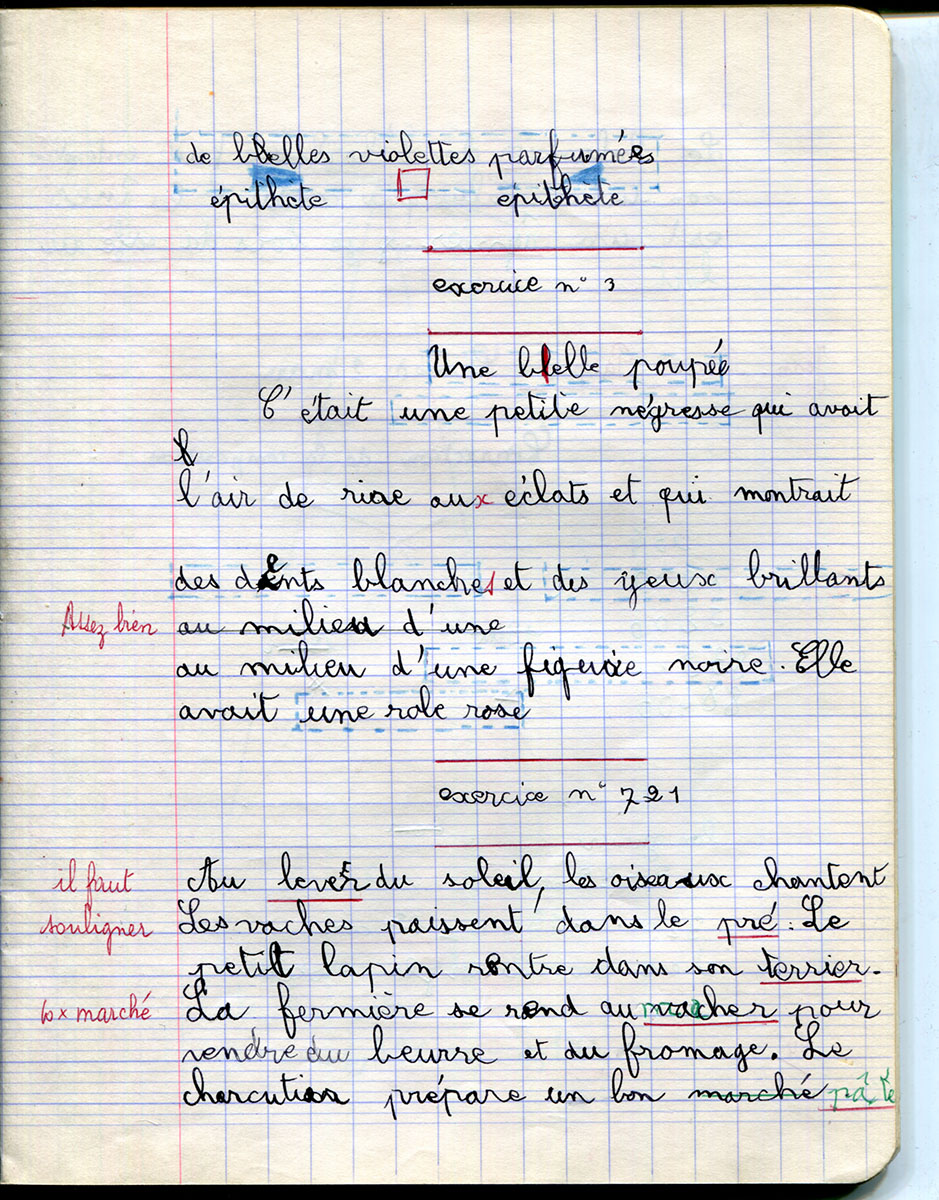 de belles violettes parfumées
épithète épithète
exercice n° 3
Une belle poupée
C'était une petite négresse qui avait
l'air de rire aux éclats et qui montrait
des dents blanches et des yeux brillants
Assez bien au milieu d'une
au milieu d'une figure noire. Elle
avait une robe rose
exercice n° 721
il faut Au lever du soleil, les oiseaux chantent
souligner Les vaches paissent dans le pré. Le
petit lapin rentre dans son terrier.
6 x marché La fermière se rend au marcher pour
vendre du beurre et du fromage. Le
charcutier prépare un bon marché pâté